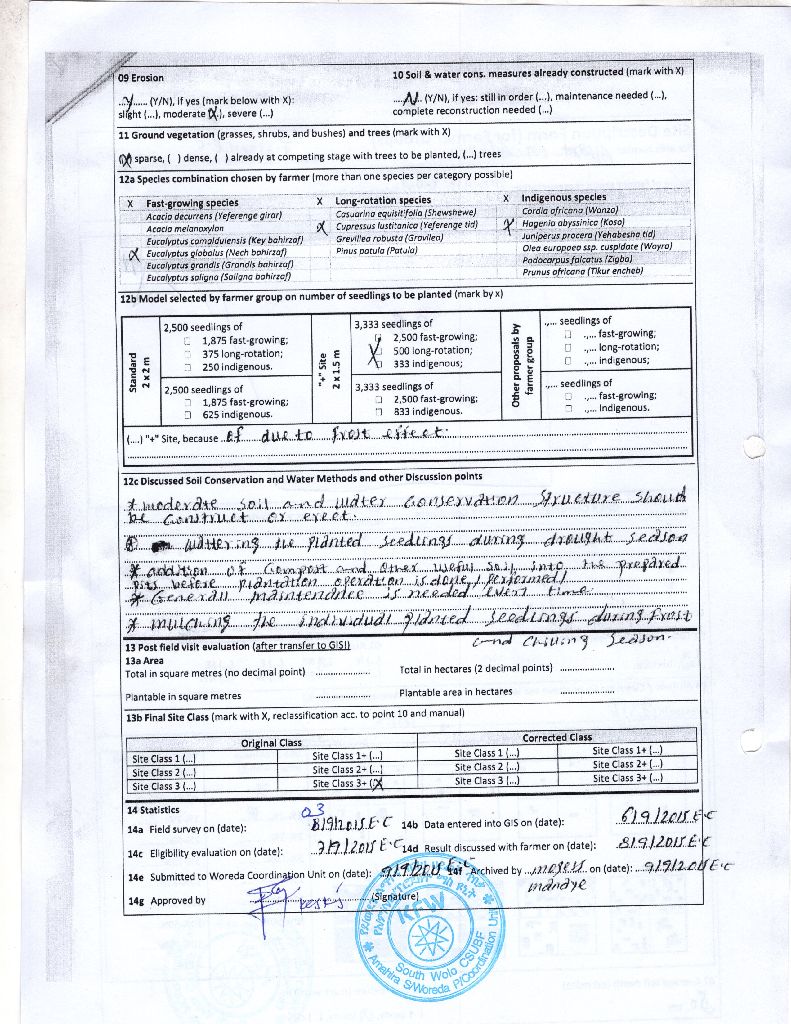 09 Erosion
10 Soil & water cons. measures already constructed (mark with X)
...Y...... (Y/N), if yes (mark below with X):
slight (...), moderate (X.), severe (...)
....N.. (Y/N), if yes: still in order (...), maintenance needed (...),
complete reconstruction needed (...)
11 Ground vegetation (grasses, shrubs, and bushes) and trees (mark with X)
(X) sparse, ( ) dense, ( ) already at competing stage with trees to be planted, (...) trees
12a Species combination chosen by farmer (more than one species per category possible)
X Fast-growing species
Acacia decurrens (Yeferenge girar)
Acacia melanoxylon
Eucalyptus camalduiensis (Key bahirzaf)
X Eucalyptus globalus (Nech bahirzaf)
Eucalyptus grandis (Grandis bahirzaf)
Eucalyptus saligna (Sailgna bahirzaf)
X Long-rotation species
Casuarina equisitifolia (Shewshewe)
X Cupressus lustitanica (Yeferenge tid)
Grevillea robusta (Gravilea)
Pinus patula (Patula)
X Indigenous species
Cordia africana (Wanza)
X Hagenia abyssinica (Koso)
Juniperus procera (Yehabesha tid)
Olea europaea ssp. cuspidate (Wayra)
Podocarpus falcatus (Zigba)
Prunus africana (Tikur encheb)
12b Model selected by farmer group on number of seedlings to be planted (mark by x)
Standard
2 x 2 m
2,500 seedlings of
1,875 fast-growing;
375 long-rotation;
250 indigenous.
2,500 seedlings of
1,875 fast-growing;
625 indigenous.
"+" Site
2 x 1.5 m
3,333 seedlings of
2,500 fast-growing;
X 500 long-rotation;
333 indigenous;
3,333 seedlings of
2,500 fast-growing;
833 indigenous.
Other proposals by
farmer group
.,... seedlings of
.,... fast-growing;
.,... long-rotation;
.,... indigenous;
.,... seedlings of
.,... fast-growing;
.,... Indigenous.
(...) "+" Site, because of due to frost effect.
12c Discussed Soil Conservation and Water Methods and other Discussion points
* moderate soil and water conservation structure should
be construct or erect.
wattering the planted seedlings during drought season
* addition of compost and other useful soil into the prepared
pits before plantation operation is done/performed/
* Generall maintenance is needed every time.
* mulching the individual planted seedlings during frost
and chilling season.
13 Post field visit evaluation (after transfer to GIS!)
13a Area
Total in square metres (no decimal point) ..................
Total in hectares (2 decimal points) ..................
Plantable in square metres ..................
Plantable area in hectares ..................
13b Final Site Class (mark with X, reclassification acc. to point 10 and manual)
Original Class
Corrected Class
Site Class 1 (...) Site Class 1+ (...) Site Class 1 (...) Site Class 1+ (...)
Site Class 2 (...) Site Class 2+ (...) Site Class 2 (...) Site Class 2+ (...)
Site Class 3 (...) Site Class 3+ (X) Site Class 3 (...) Site Class 3+ (...)
14 Statistics
03
14a Field survey on (date): 8/9/2015 E.C 14b Data entered into GIS on (date): 6/9/2015 E.C
14c Eligibility evaluation on (date): 7/9/2015 E.C 14d Result discussed with farmer on (date): 8/9/2015 E.C
14e Submitted to Woreda Coordination Unit on (date): 9/9/2015 E.C 14f Archived by ... on (date): 9/9/2015 E.C
14g Approved by (Signature)
KFW
South Wolo CSUBF
Amahira S/Woreda P/Coordination Unit